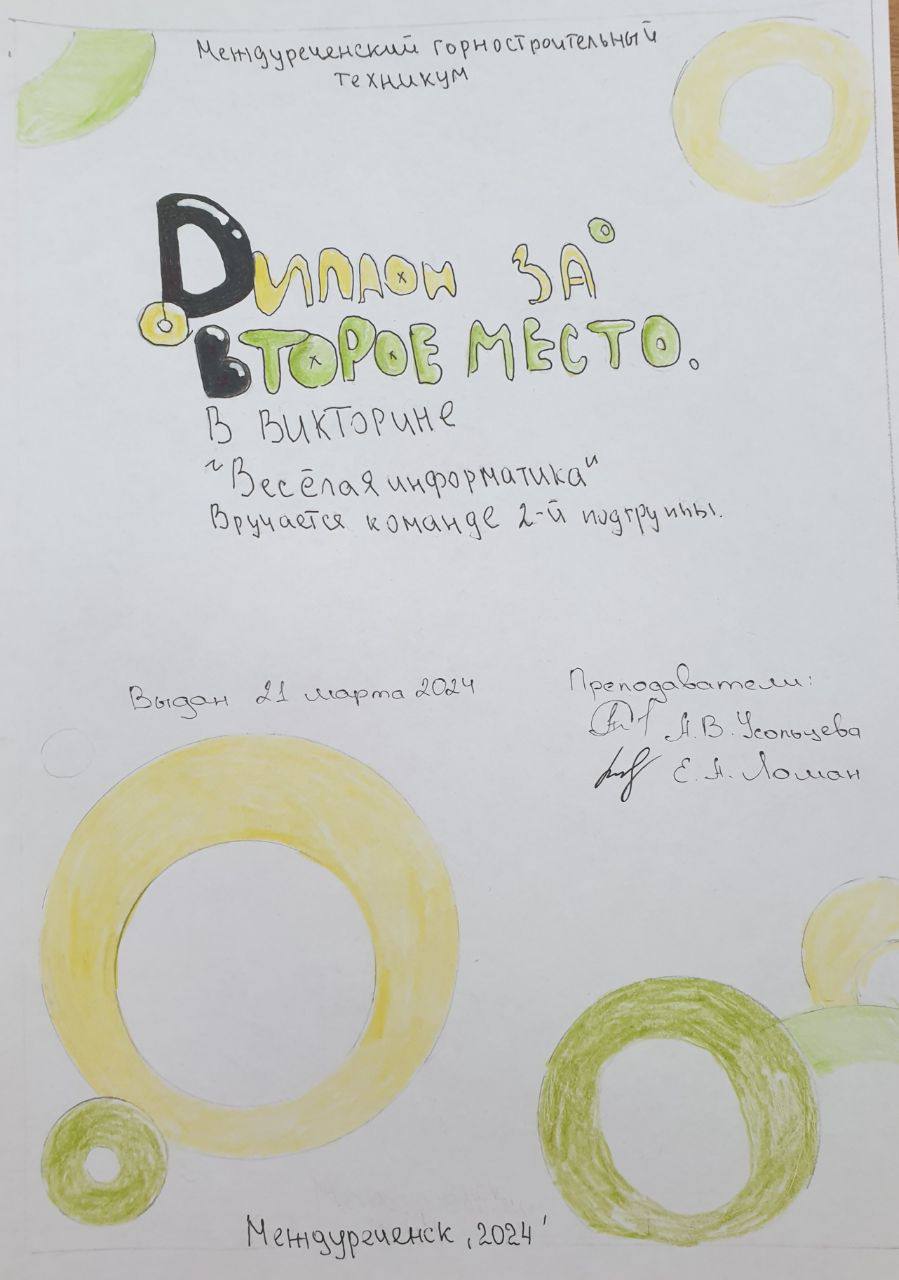 Междуреченский горностроительный
техникум
Диплом за
второе место.
В викторине
"Весёлая информатика"
Вручается команде 2-й подгруппы.
Выдан 21 марта 2024
Преподаватели:
А.В. Усольцева
Е.А. Ломан
Междуреченск, 2024